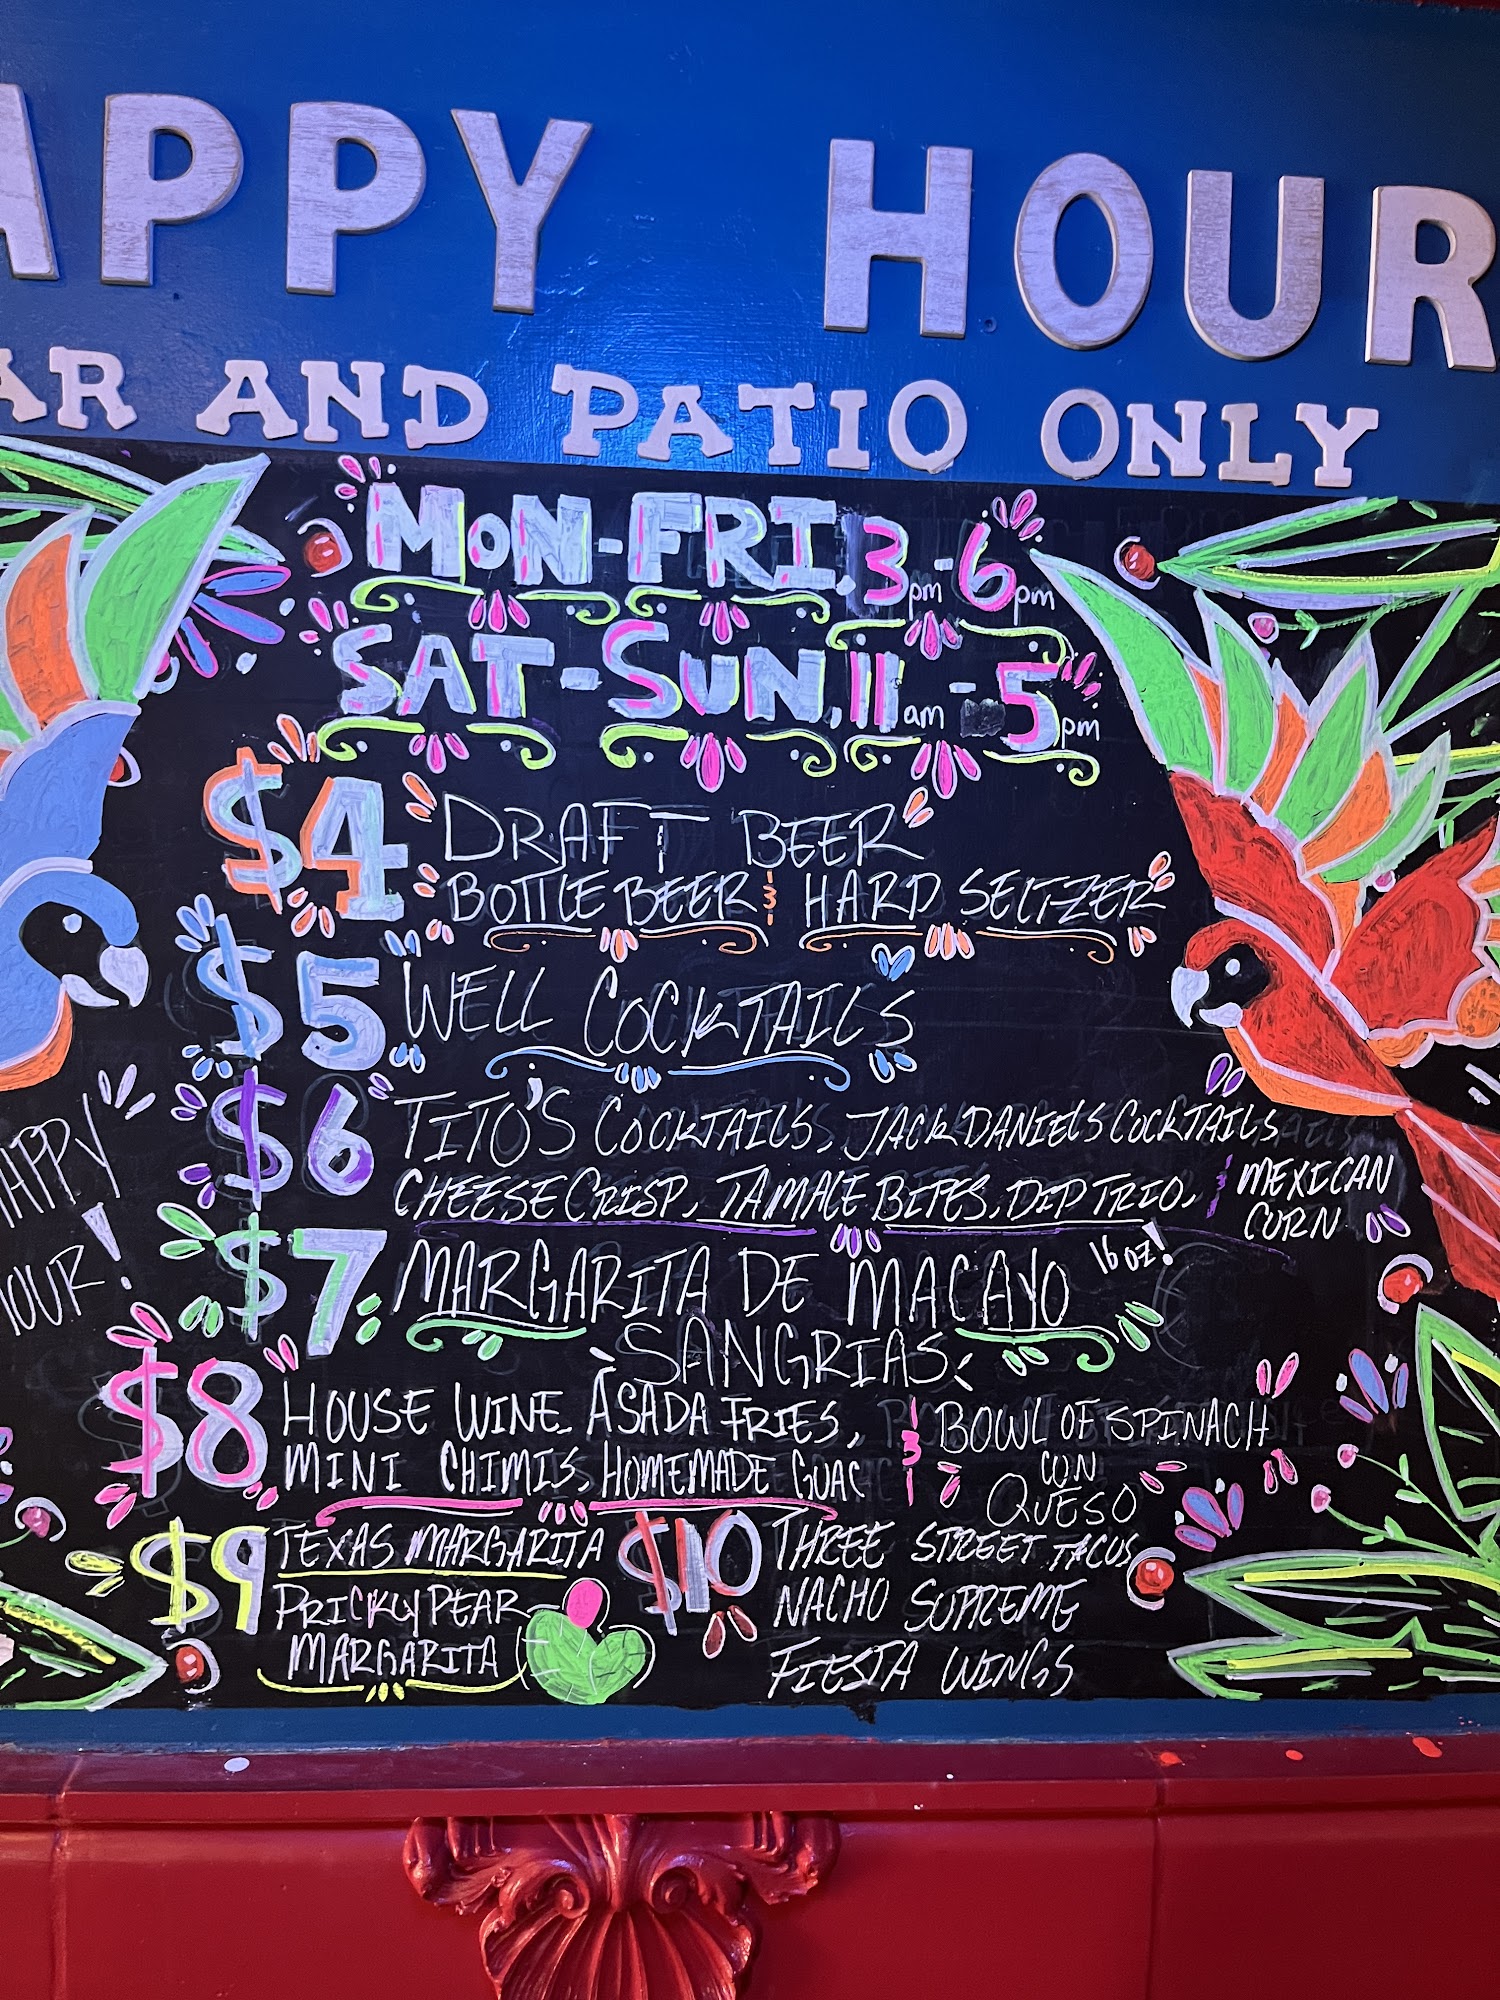 APPY HOUR
AR AND PATIO ONLY
MON-FRI, 3pm-6pm
SAT-SUN, 11am-5pm
$4 DRAFT BEER
BOTTLE BEER & HARD SELTZER
$5 WELL COCKTAILS
$6 TITO'S COCKTAILS, JACK DANIELS COCKTAILS
CHEESE CRISP, TAMALE BITES, DIP TRIO, & MEXICAN
CORN
HAPPY
HOUR!
$7 MARGARITA DE MACAYO 16 oz!
SANGRIAS
$8 HOUSE WINE. ASADA FRIES,
MINI CHIMIS, HOMEMADE GUAC
& BOWL OF SPINACH
CON
QUESO
$9 TEXAS MARGARITA
PRICKLY PEAR
MARGARITA
$10 THREE STREET TACOS
NACHO SUPREME
FIESTA WINGS